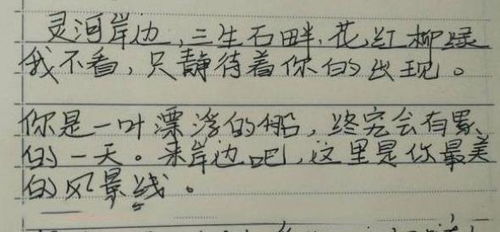 灵河岸边,三生石畔,花红柳绿
我不看,只静待着你的出现。
你是一叶漂浮的船,终究会有累
的一天。来岸边吧,这里是你最美
的风景线。